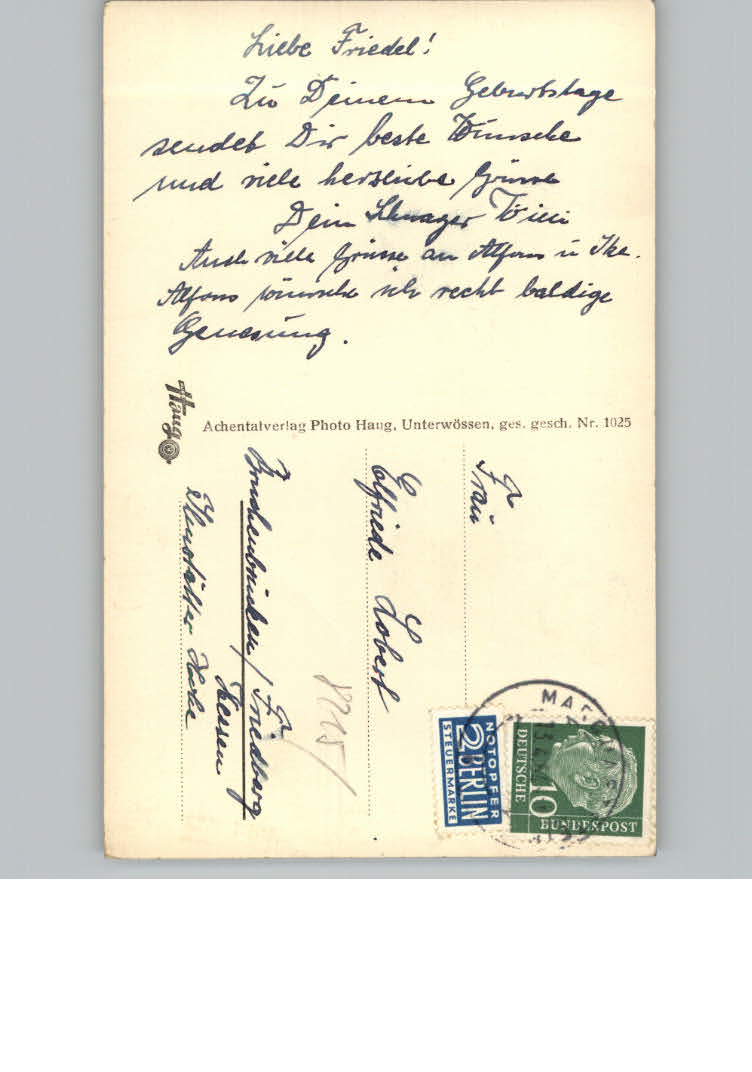 Liebe Friedel!
Zu Deinem Geburtstage
sendet Dir beste Wünsche
und viele herzliebe Grüsse
Dein Schwager Willi
Auch viele Grüsse an Alfons u Ike.
Alfons wünsche ich recht baldige
Genesung.
Haug
Achentalverlag Photo Haug, Unterwössen, ges. gesch. Nr. 1025
Frau
Elfriede Lobert
Bruchenbrücken / Friedberg
Hessen
NOTOPFER
2 BERLIN
STEUERMARKE
DEUTSCHE
10
BUNDESPOST